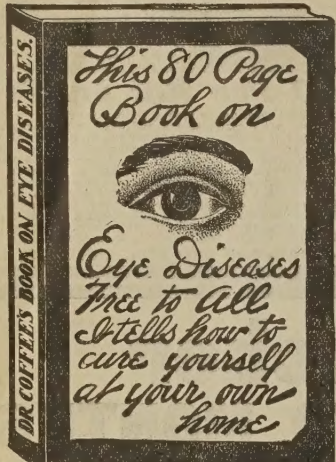 DR. COFFEE'S BOOK ON EYE DISEASES.
This 80 Page
Book on
Eye Diseases
Free to All
It tells how to
cure yourself
at your own
home